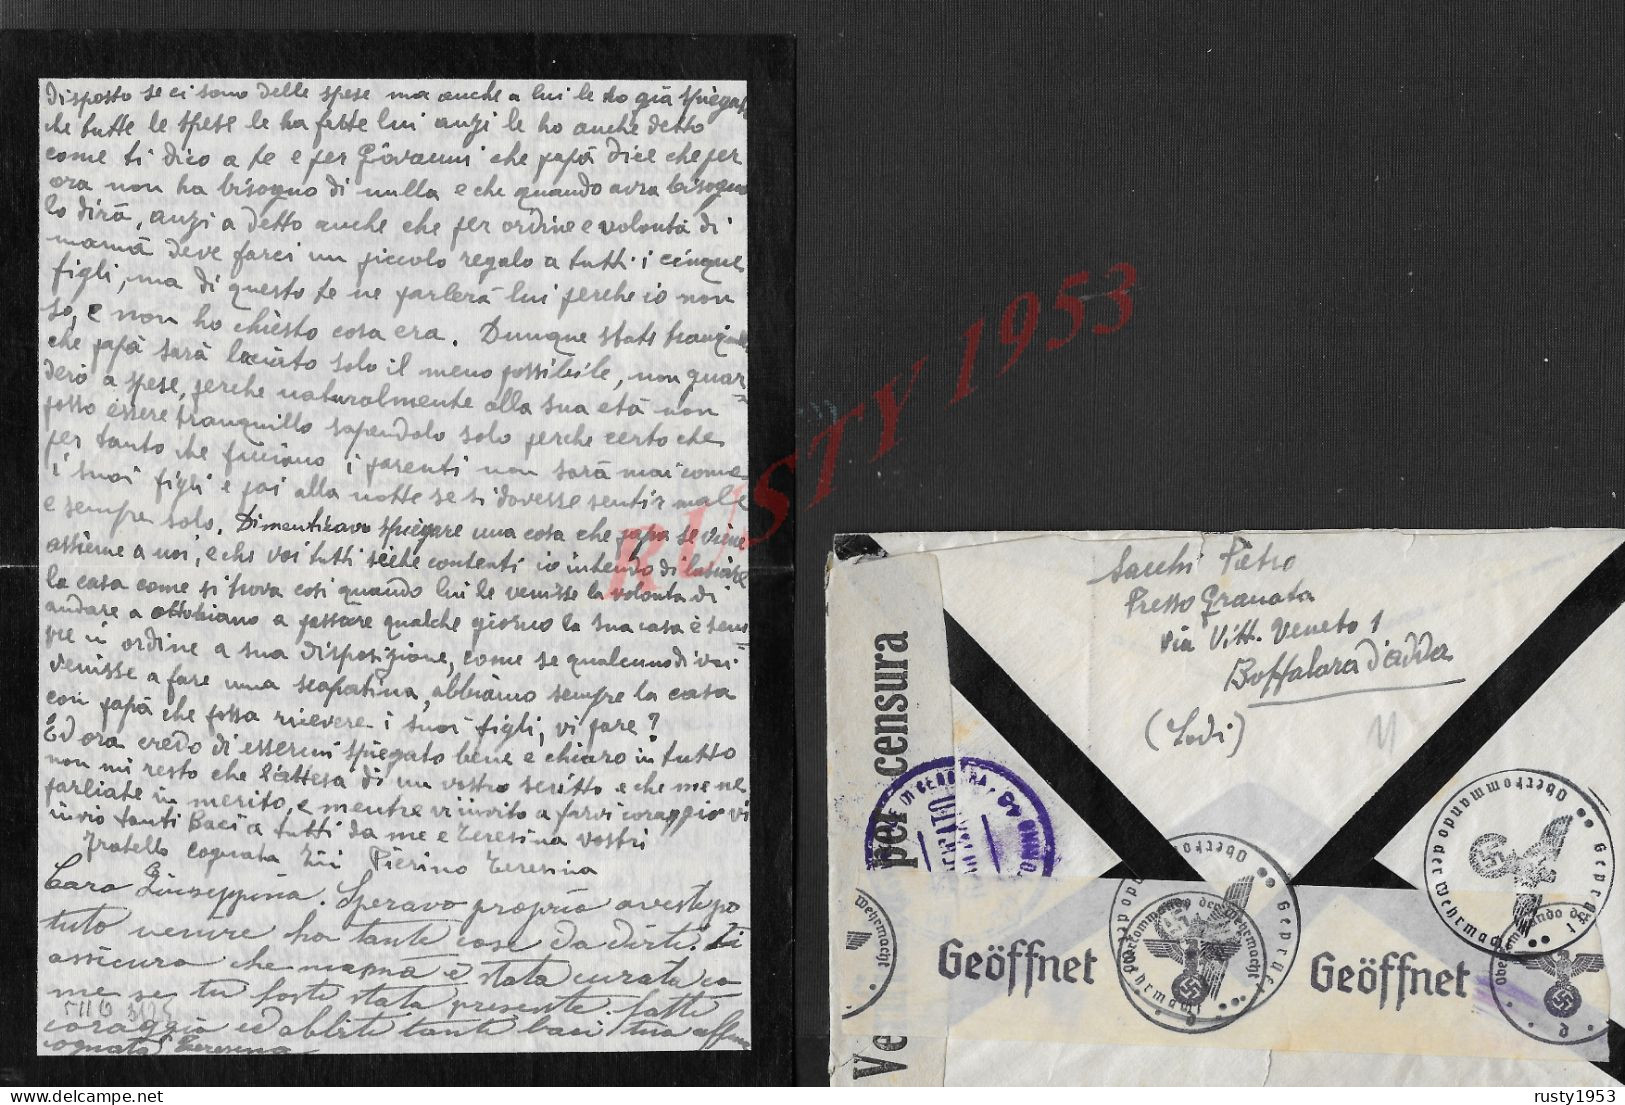 disposto se ci sono delle spese ma anche a lui le ho già spiegat
che tutte le spese le ha fatte lui anzi le ho anche detto
come ti dico a te e per Giovanni che papà dice che per
ora non ha bisogno di nulla e che quando avra bisogno
lo dirà, anzi a detto anche che per ordine e volontà di
mamà deve farci un piccolo regalo a tutti i cinque
figli, ma di questo te ne parlerà lui perche io non
so, e non ho chiesto cosa era. Dunque state tranquilli
che papà sarà lasciato solo il meno possibile, non guar=
derò a spese, perche naturalmente alla sua età non
posso essere tranquillo sapendolo solo perche certo che
per tanto che facciano i parenti non sarà mai come
i suoi figli e poi alla notte se si dovesse sentir male
e sempre solo. Dimenticavo spiegare una cosa che papa se viene
assieme a noi, e che voi tutti siete contenti io intendo di lasciare
la casa come si trova così quando lui le venisse la volontà di
andare a ottobiano a passare qualche giorno la sua casa è sem
pre in ordine a sua disposizione, come se qualcuno di voi
venisse a fare una scapatina, abbiamo sempre la casa
con papà che possa ricevere i suoi figli, vi pare?
Ed ora credo di essermi spiegato bene e chiaro in tutto
non mi resto che l'attesa di un vostro scritto e che me ne
parliate in merito, e mentre vi invito a farvi coraggio vi
invio tanti Baci a tutti da me e Teresina vostri
Fratello Cognata Zii Pierino Teresina
Cara Giuseppina. Speravo proprio avesti po
tuto venire ho tante cose da dirti. Ti
assicuro che mammà è stata curata co
me se tu fosti stata presente. fatti
coraggio ed abbiti tanti baci tua aff
cognata Teresina
RUSTY 1953
Sacchi Pietro
Presso Granata
via Vitt. Veneto 1
Boffalora d'adda
(Lodi)
11
Ve
per censura
VERIFICATO
Geöffnet
Geöffnet
Oberkommando der Wehrmacht
Geprüft
Oberkommando der Wehrmacht
Geprüft
Oberkommando der Wehrmacht
Wehrmacht
delcampe.net
rusty1953